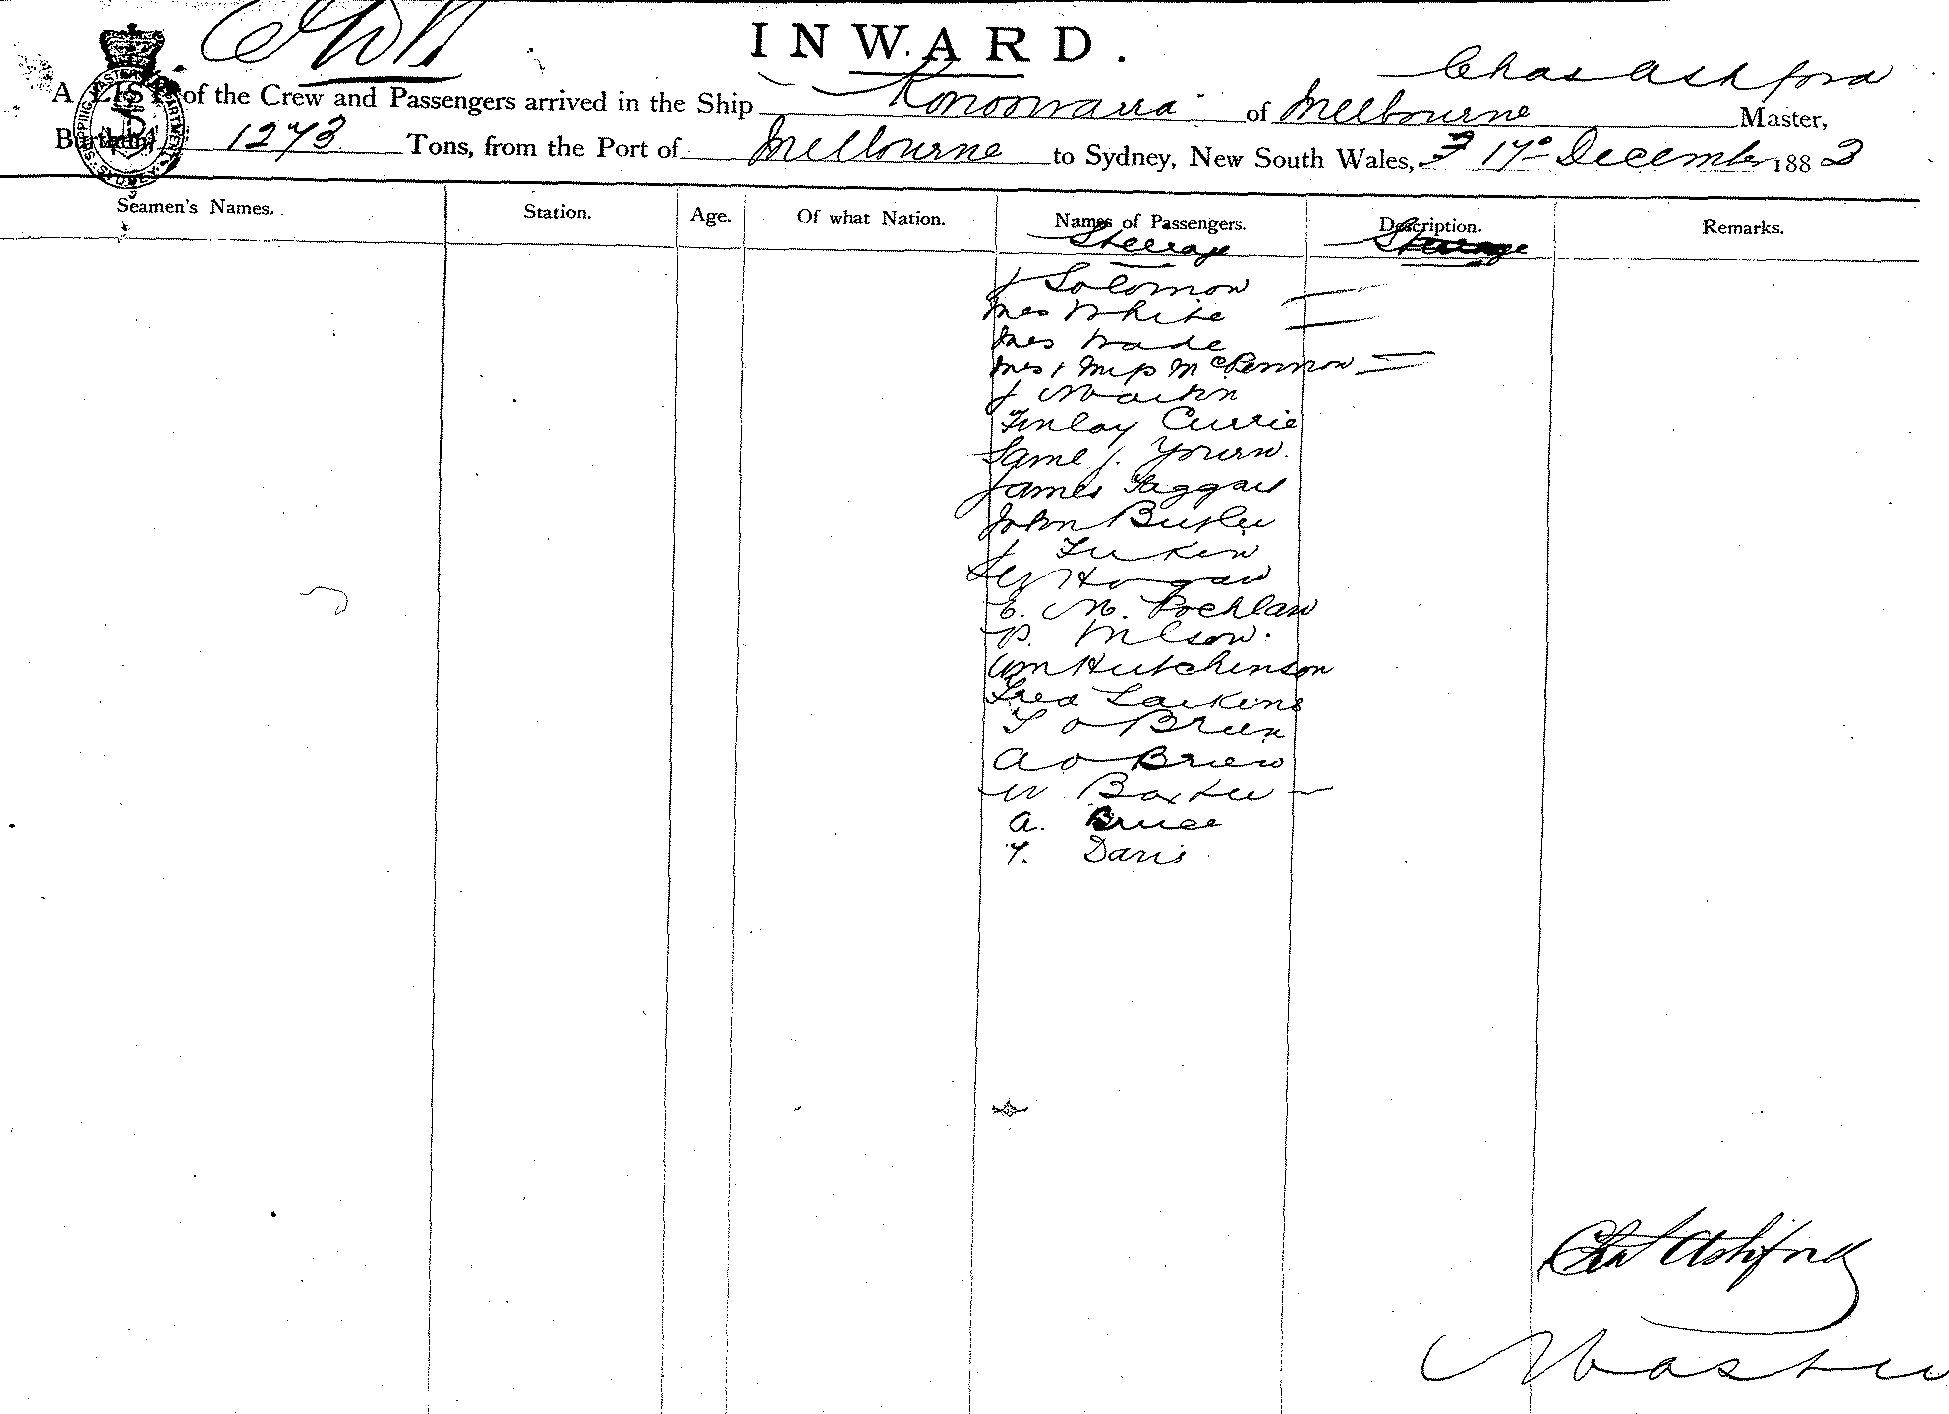 INWARD.
Chas Ashford
A LIST of the Crew and Passengers arrived in the Ship Konoowarra of Melbourne Master,
Burthen 1273 Tons, from the Port of Melbourne to Sydney, New South Wales, 17th December 1883
Seamen's Names. Station. Age. Of what Nation. Names of Passengers. Description. Remarks.
Steerage Steerage
J Solomon
Mrs White
Mrs Wade
Mrs & Miss
J Martin
Finlay Currie
Saml J.
James Taggart
John Butler
J
Hogan
E. M.
P. Wilson.
Wm Hutchinson
Fred Larkins
T O Brien
A O Brien
W Baxter
A. Bruce
T. Davis
Chas Ashford
Master